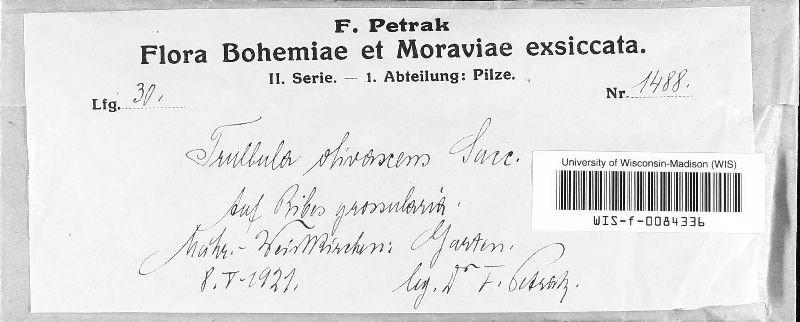 F. Petrak
Flora Bohemiae et Moraviae exsiccata.
II. Serie. — 1. Abteilung: Pilze.
Lfg. 30.
Nr. 1488.
Trullula olivascens Sacc.
Auf Ribes grossularia.
Mähr.-Weißkirchen: Garten.
8.V-1921.
leg. Dr F. Petrak.
University of Wisconsin-Madison (WIS)
WIS-f-0084336